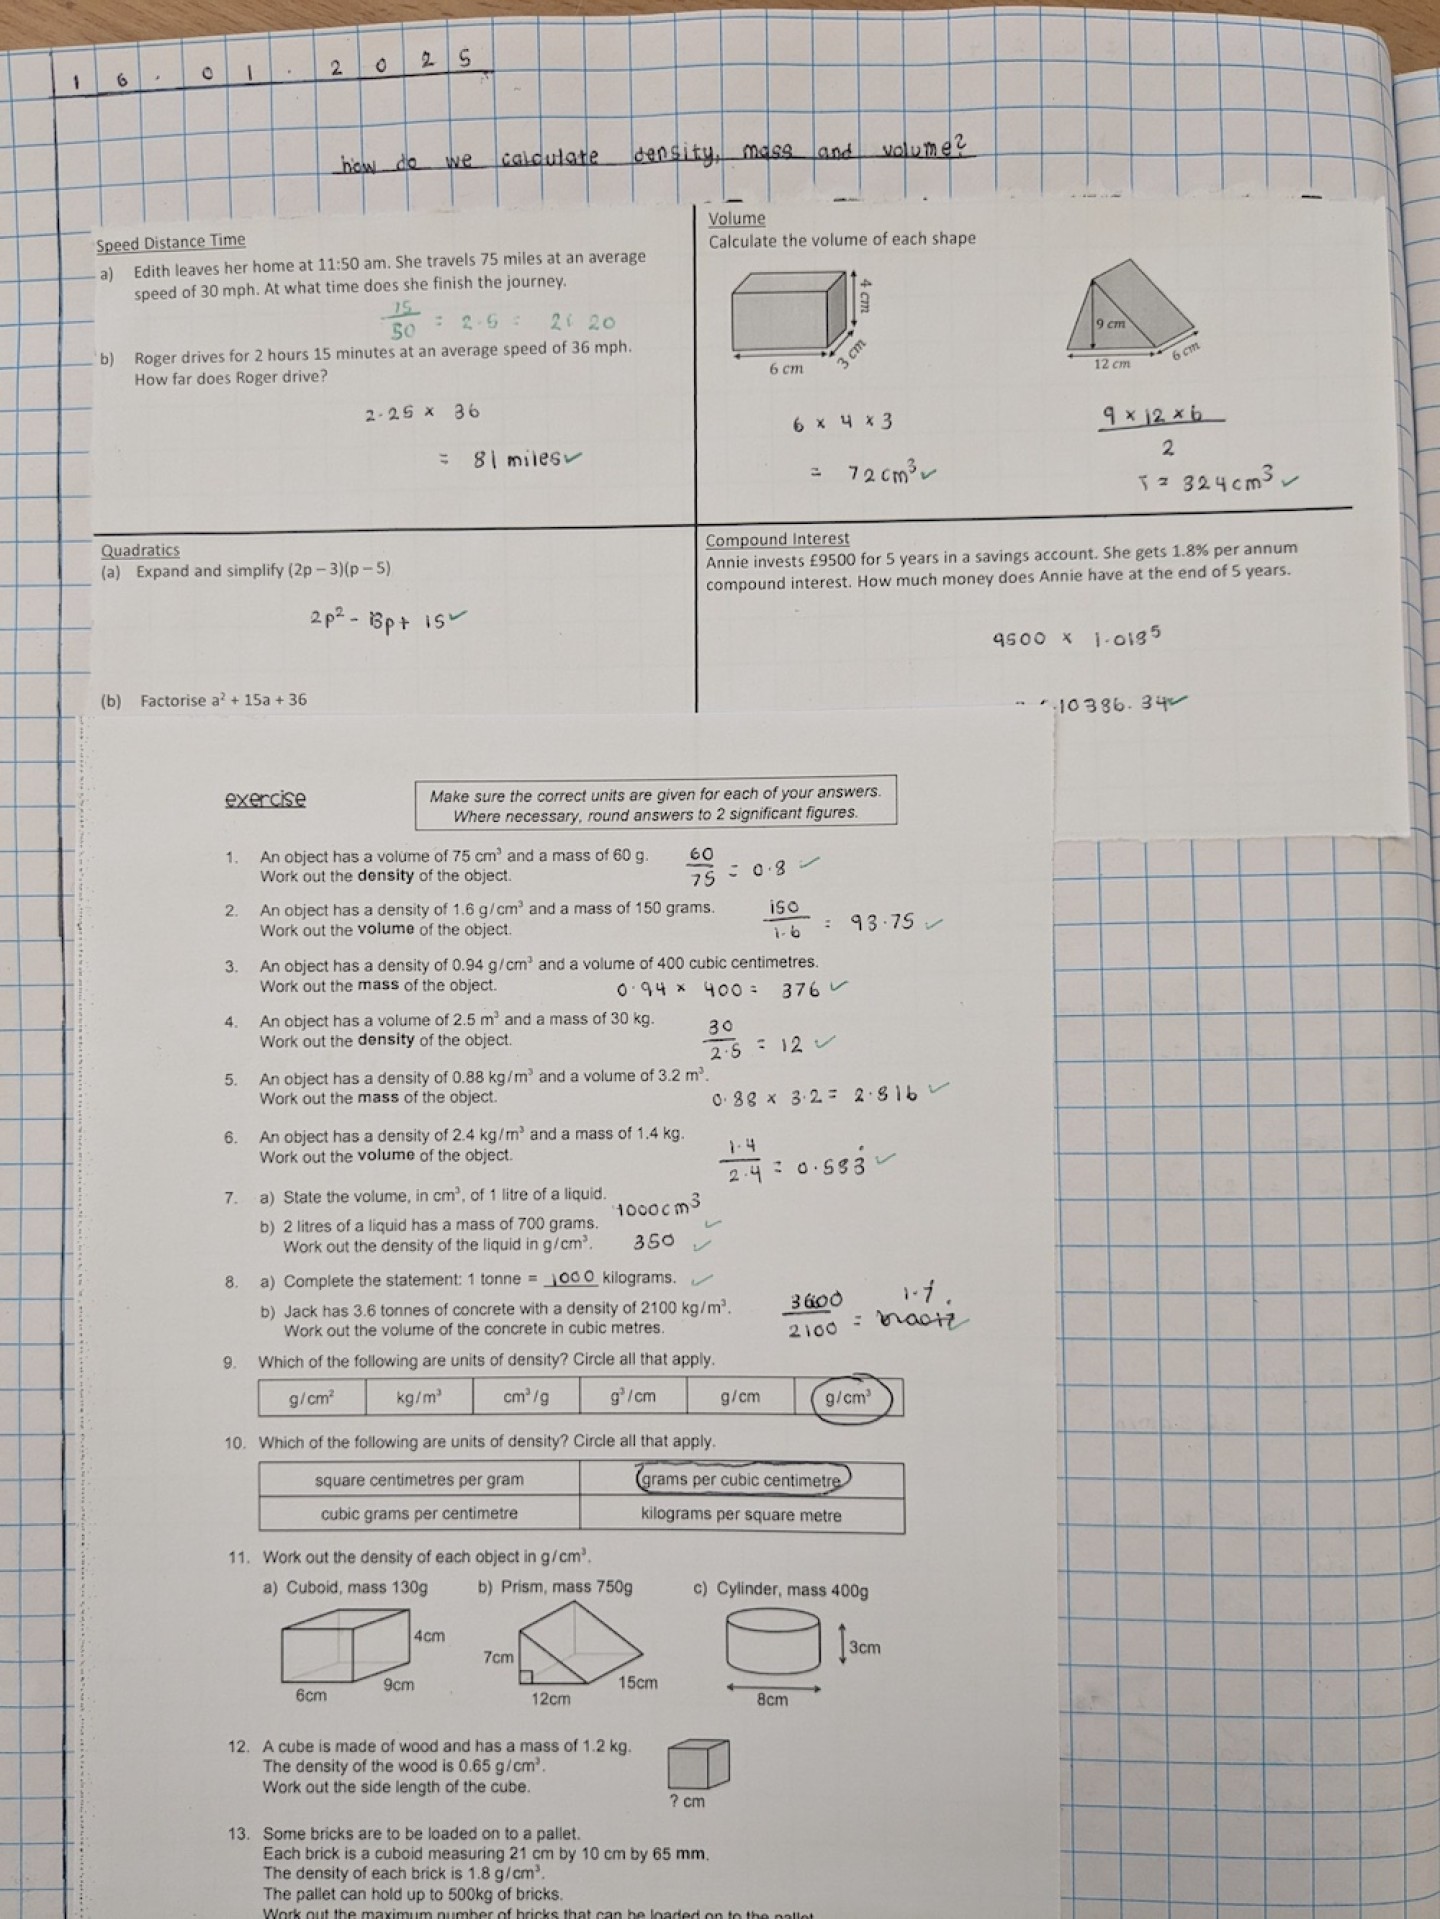 16.01.2025
how do we calculate density, mass and volume?
Speed Distance Time
a) Edith leaves her home at 11:50 am. She travels 75 miles at an average
speed of 30 mph. At what time does she finish the journey.
75
50
= 2.5 = 2: 20
b) Roger drives for 2 hours 15 minutes at an average speed of 36 mph.
How far does Roger drive?
2.25 × 36
= 81 miles ✓
Volume
Calculate the volume of each shape
4 cm
3 cm
6 cm
9 cm
12 cm
6 cm
6 × 4 × 3
= 72cm³ ✓
9 × 12 × 6
2
= 324cm³ ✓
Quadratics
(a) Expand and simplify (2p – 3)(p – 5)
2p² - 13p + 15 ✓
(b) Factorise a² + 15a + 36
Compound Interest
Annie invests £9500 for 5 years in a savings account. She gets 1.8% per annum
compound interest. How much money does Annie have at the end of 5 years.
9500 × 1.018⁵
10386.34 ✓
exercise
Make sure the correct units are given for each of your answers.
Where necessary, round answers to 2 significant figures.
1. An object has a volume of 75 cm³ and a mass of 60 g.
Work out the density of the object.
60
75
= 0.8 ✓
2. An object has a density of 1.6 g/cm³ and a mass of 150 grams.
Work out the volume of the object.
150
1.6
= 93.75 ✓
3. An object has a density of 0.94 g/cm³ and a volume of 400 cubic centimetres.
Work out the mass of the object.
0.94 × 400 = 376 ✓
4. An object has a volume of 2.5 m³ and a mass of 30 kg.
Work out the density of the object.
30
2.5
= 12 ✓
5. An object has a density of 0.88 kg/m³ and a volume of 3.2 m³.
Work out the mass of the object.
0.88 × 3.2 = 2.816 ✓
6. An object has a density of 2.4 kg/m³ and a mass of 1.4 kg.
Work out the volume of the object.
1.4
2.4
= 0.583̇ ✓
7. a) State the volume, in cm³, of 1 litre of a liquid.
1000cm³ ✓
b) 2 litres of a liquid has a mass of 700 grams.
Work out the density of the liquid in g/cm³.
350 ✓
8. a) Complete the statement: 1 tonne = 1000 kilograms. ✓
b) Jack has 3.6 tonnes of concrete with a density of 2100 kg/m³.
Work out the volume of the concrete in cubic metres.
3600
2100
= 1.7
9. Which of the following are units of density? Circle all that apply.
g/cm² kg/m³ cm³/g g³/cm g/cm g/cm³
10. Which of the following are units of density? Circle all that apply.
square centimetres per gram grams per cubic centimetre
cubic grams per centimetre kilograms per square metre
11. Work out the density of each object in g/cm³.
a) Cuboid, mass 130g b) Prism, mass 750g c) Cylinder, mass 400g
4cm
9cm
6cm
7cm
15cm
12cm
3cm
8cm
12. A cube is made of wood and has a mass of 1.2 kg.
The density of the wood is 0.65 g/cm³.
Work out the side length of the cube.
? cm
13. Some bricks are to be loaded on to a pallet.
Each brick is a cuboid measuring 21 cm by 10 cm by 65 mm.
The density of each brick is 1.8 g/cm³.
The pallet can hold up to 500kg of bricks.
Work out the maximum number of bricks that can be loaded on to the pallet